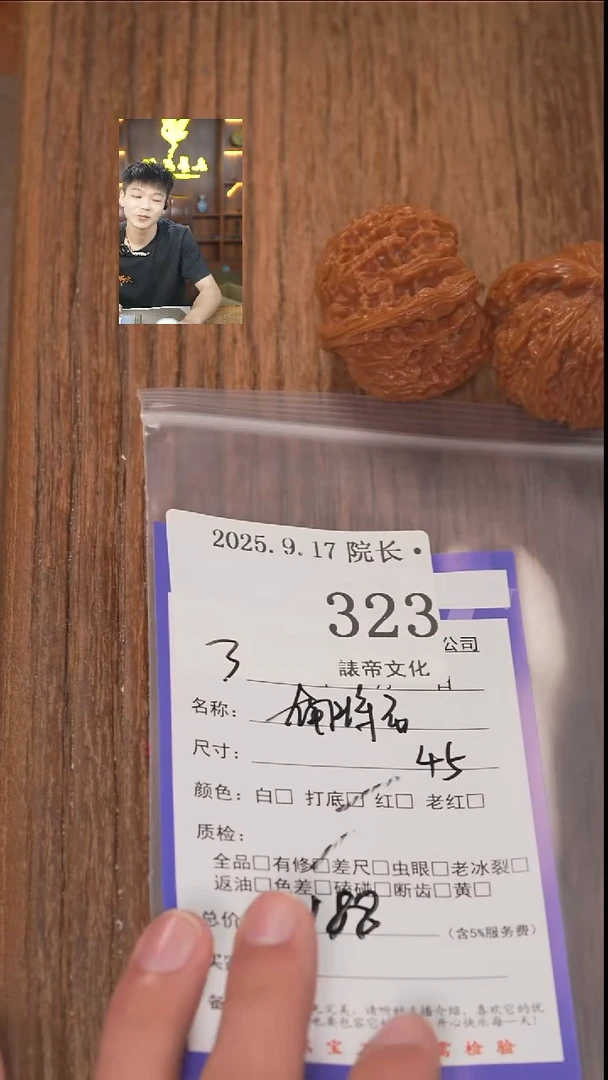 2025.9.17 院长·
323
公司
3
誄帝文化
名称：
尺寸： 45
颜色：白□ 打底□ 红□ 老红□
质检：
全品□有修□差尺□虫眼□老冰裂□
返油□色差□磕碰□断齿□黄□
总价 188 （含5%服务费）
完美，请听 主播介绍，喜欢它的优
也要包容它 开心快乐每一天！
宝 需 检 验